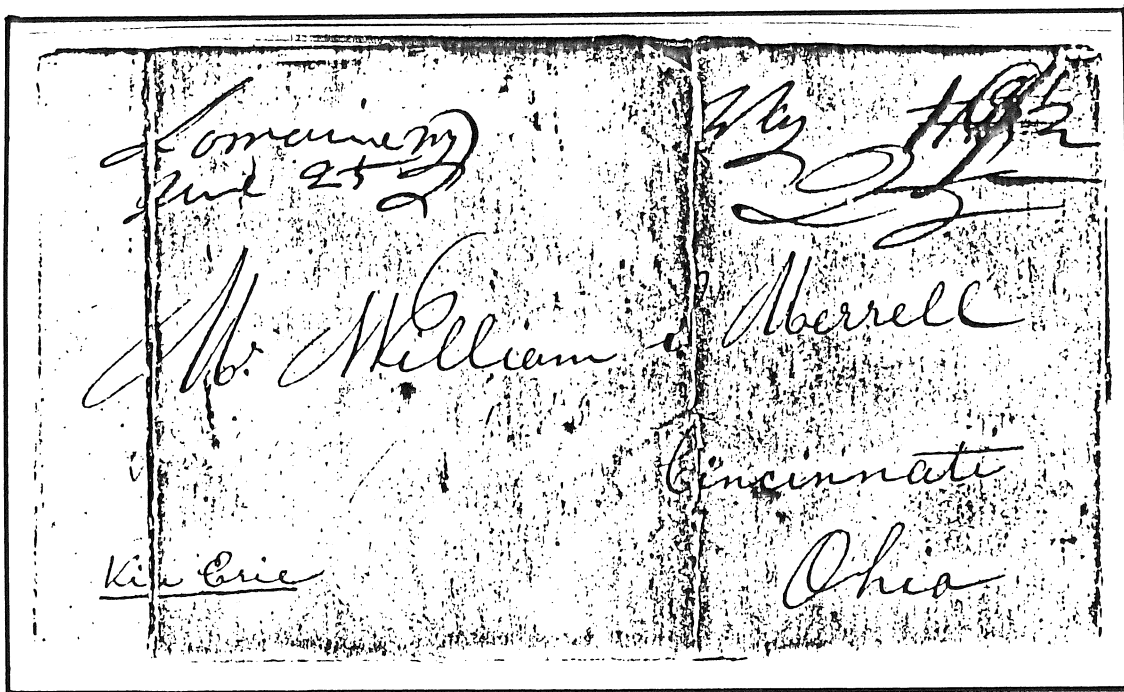 Lorraine NY
June 25
Mr. William Merrell
Cincinnati
Ohio
Via Erie